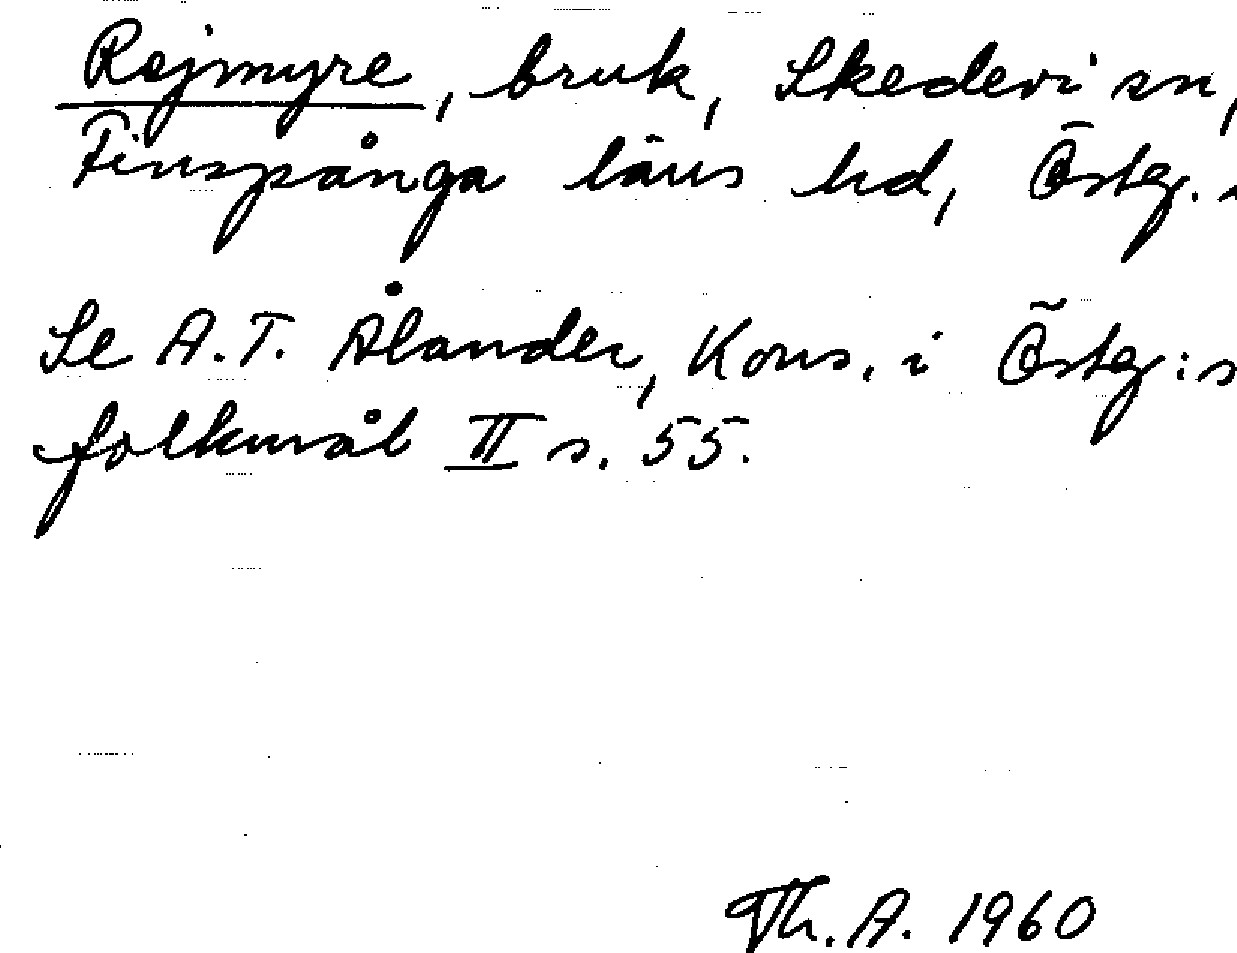 Rejmyre, bruk, Skedevi sn,
Finspånga läns hd, Östg..
Se A.T. Ålander, Kons. i Östg:s
folkmål II s. 55.
Th. A. 1960